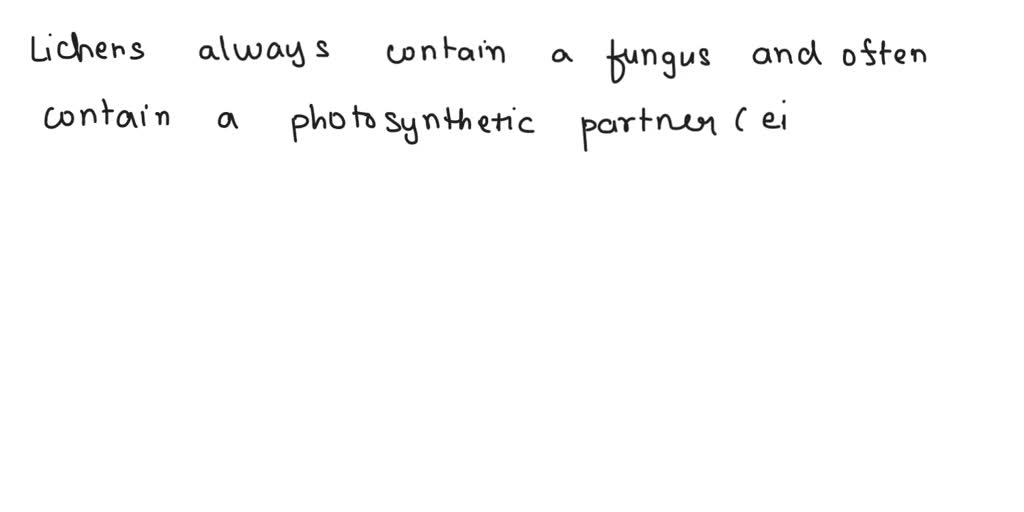 Lichens always contain a fungus and often
contain a photosynthetic partner (ei